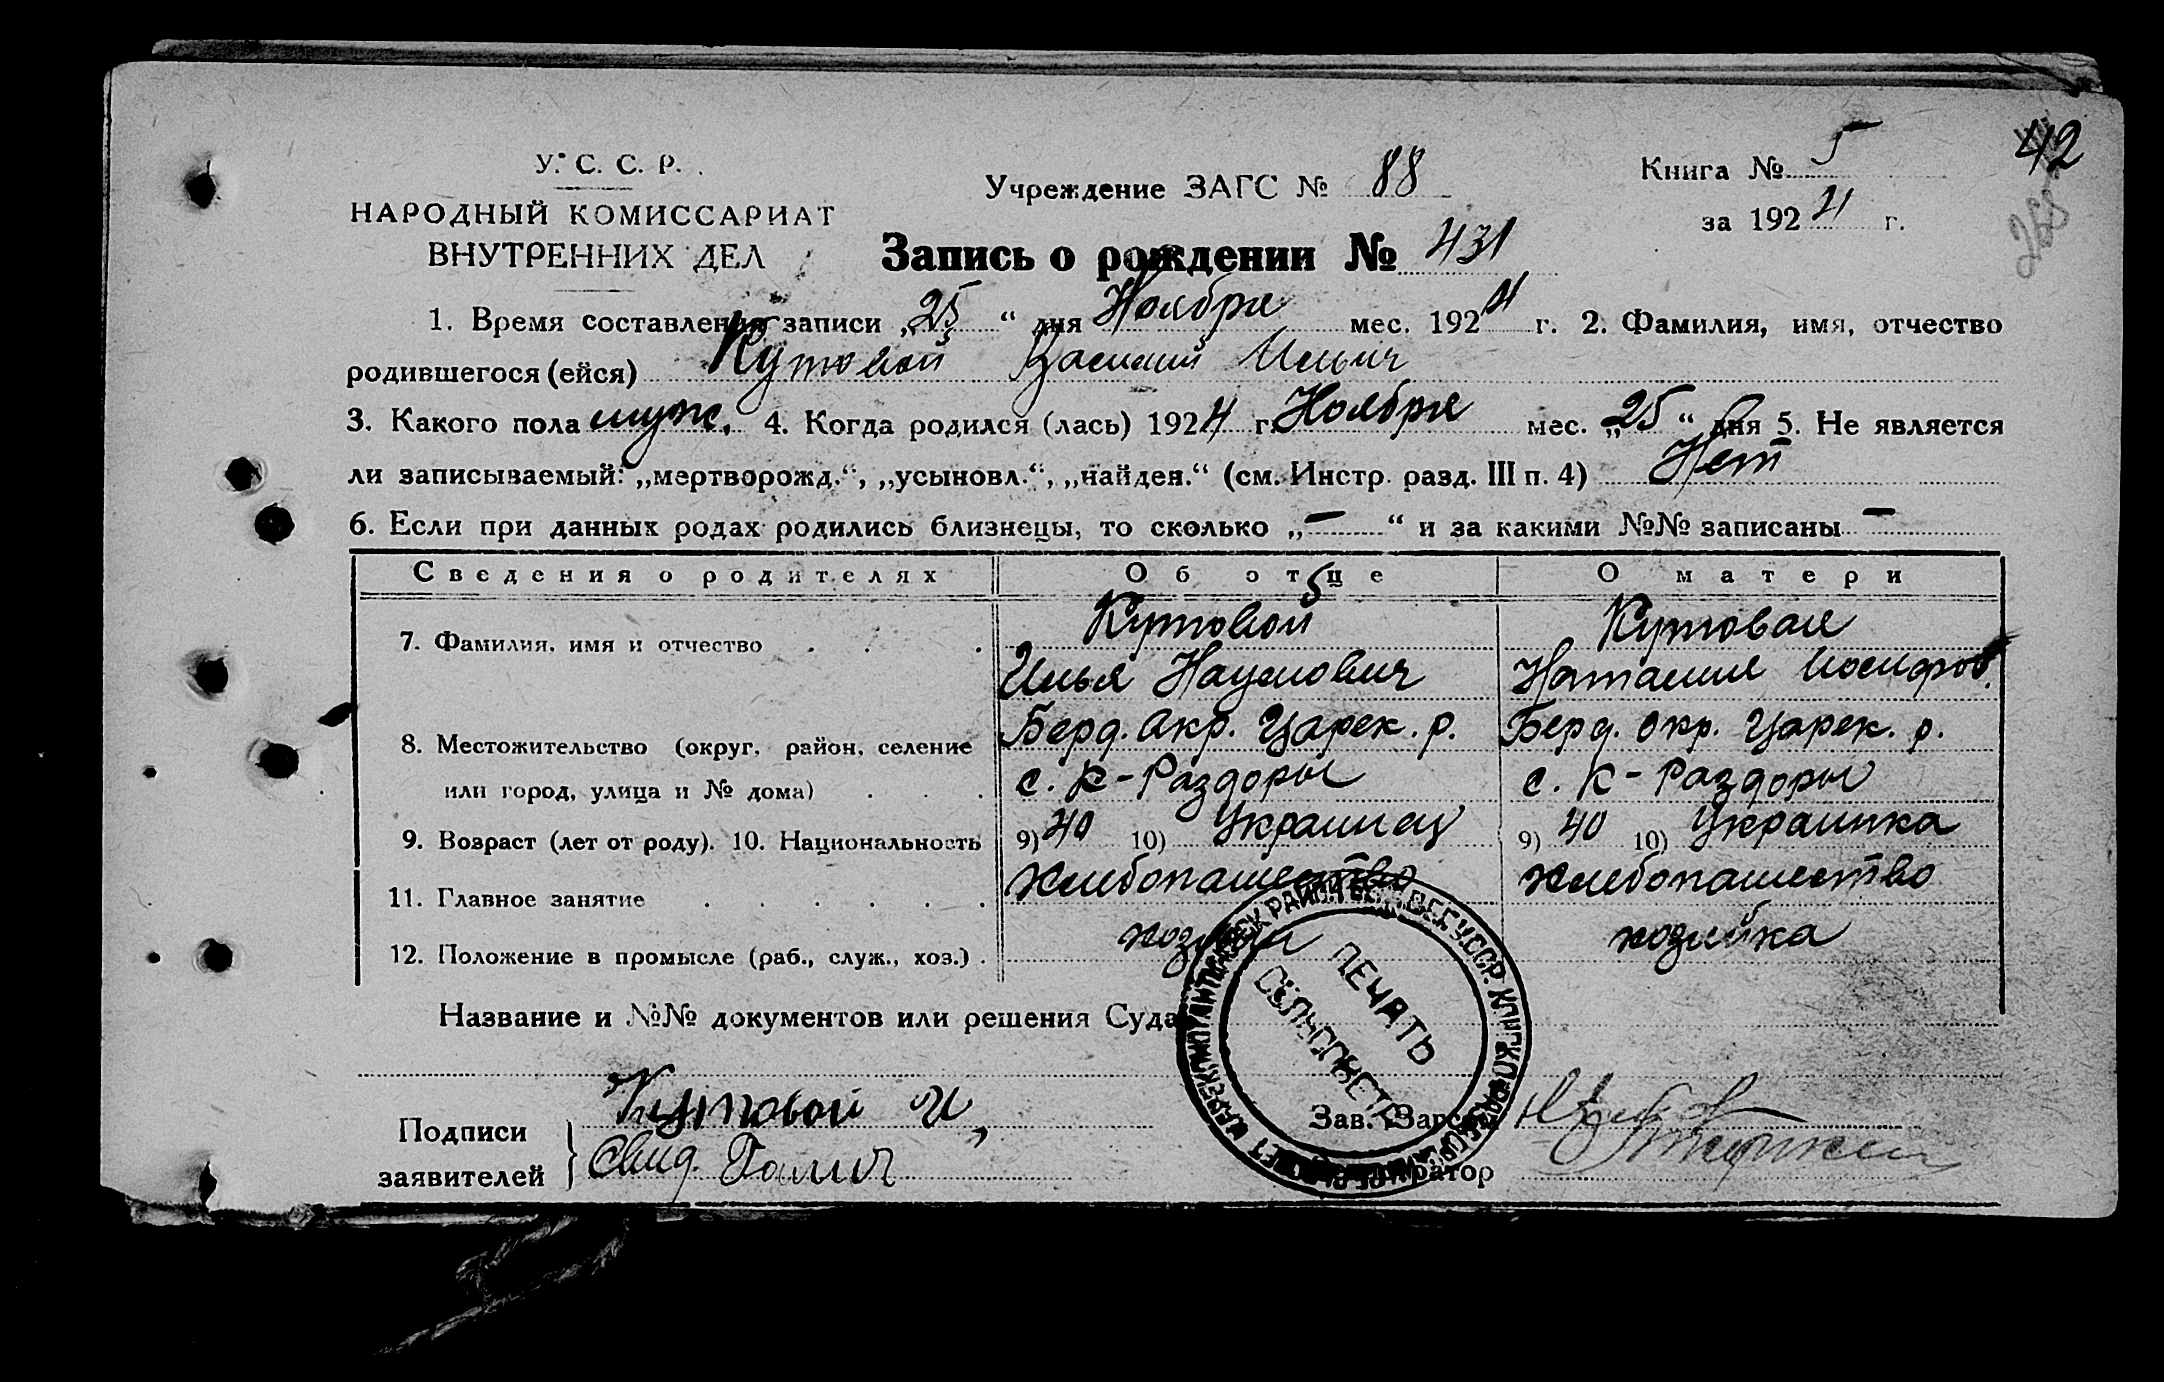 42
У. С. С. Р.
НАРОДНЫЙ КОМИССАРИАТ
ВНУТРЕННИХ ДЕЛ
Учреждение ЗАГС № 88
Книга № 5
за 1924 г.
268
Запись о рождении № 431
1. Время составления записи „25“ дня Ноября мес. 1924 г. 2. Фамилия, имя, отчество
родившегося (ейся) Кутовой Василий Ильич
3. Какого пола муж. 4. Когда родился (лась) 1924 г. Ноября мес. „25“ дня 5. Не является
ли записываемый: „мертворожд.“, „усыновл.“, „найден.“ (см. Инстр. разд. III п. 4) Нет
6. Если при данных родах родились близнецы, то сколько „—“ и за какими №№ записаны —
Сведения о родителях Об отце О матери
7. Фамилия, имя и отчество Кутовой Кутовая
Илья Наумович Наталия Иосифов.
8. Местожительство (округ, район, селение Берд. окр. Царек. р. Берд. окр. Царек. р.
или город, улица и № дома) с. К-Раздоры с. К-Раздоры
9. Возраст (лет от роду). 10. Национальность 9) 40 10) Украинец 9) 40 10) Украинка
11. Главное занятие Хлебопашество Хлебопашество
12. Положение в промысле (раб., служ., хоз.) хозяин хозяйка
Название и №№ документов или решения Суда
ПЕЧАТЬ
Подписи
заявителей
Кутовой И,
Свид.
Зав. Загсом